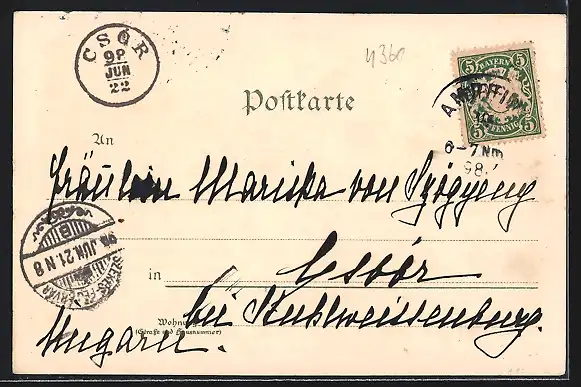 CSÓR
98
JUN
22
4360
BAYERN
5 5
5 PFENNIG 5
Postkarte
6-7 Nm
98.
An
Fräulein Mariska von Szögyény
98 JUN. 21. N 8
in Csóór
Wohnung
(Straße und Hausnummer)
bei Stuhlweissenburg.
Ungarn.